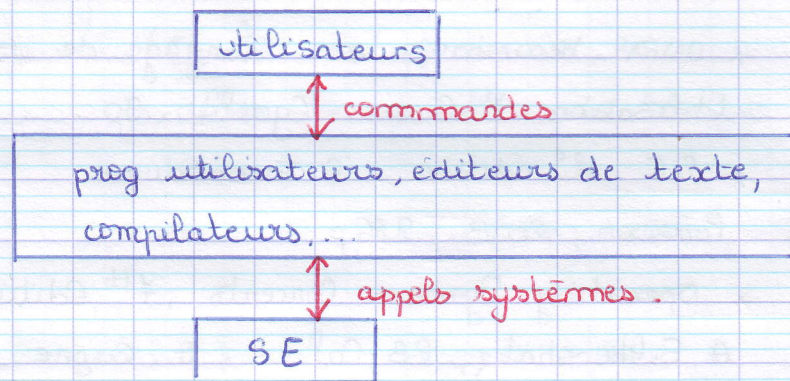 utilisateurs
commandes
prog utilisateurs, éditeurs de texte,
compilateurs, ...
appels systèmes.
SE